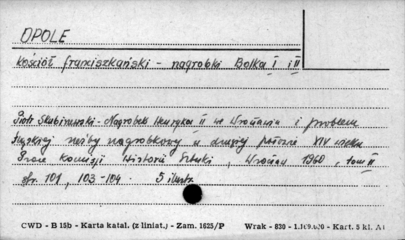 OPOLE
Kościół franciszkański - nagrobki Bolka I i II
Piotr Skubiszewski - Nagrobek Henryka II we Wrocławiu i problem
śląskiej rzeźby nagrobkowej w drugiej połowie XIV wieku
Prace Komisji Historii Sztuki, Wrocław 1960, tom II
str. 101, 103-104. 5 ilustr.
CWD - B 15b - Karta katal. (z liniat.) - Zam. 1625/P Wrak - 830 - - Kart. 5 kl. A1